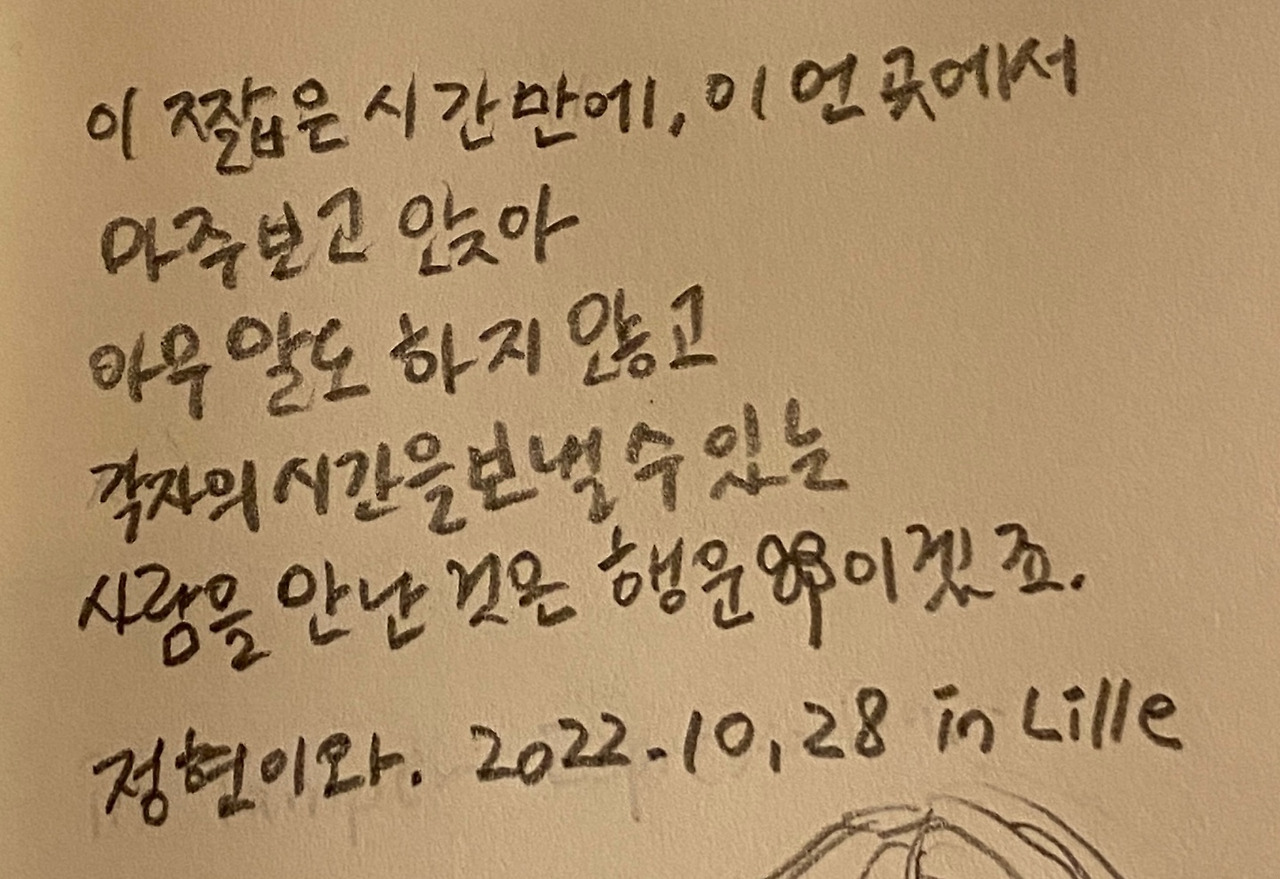 이 짧은 시간만에, 이 먼 곳에서
마주보고 앉아
아무 말도 하지 않고
각자의 시간을 보낼 수 있는
사람을 만난 것은 행운이겠죠.
정현이와. 2022.10,28 in Lille